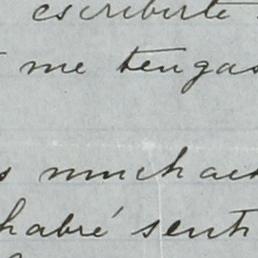 escribirte
me tengas
muchas
habré sent